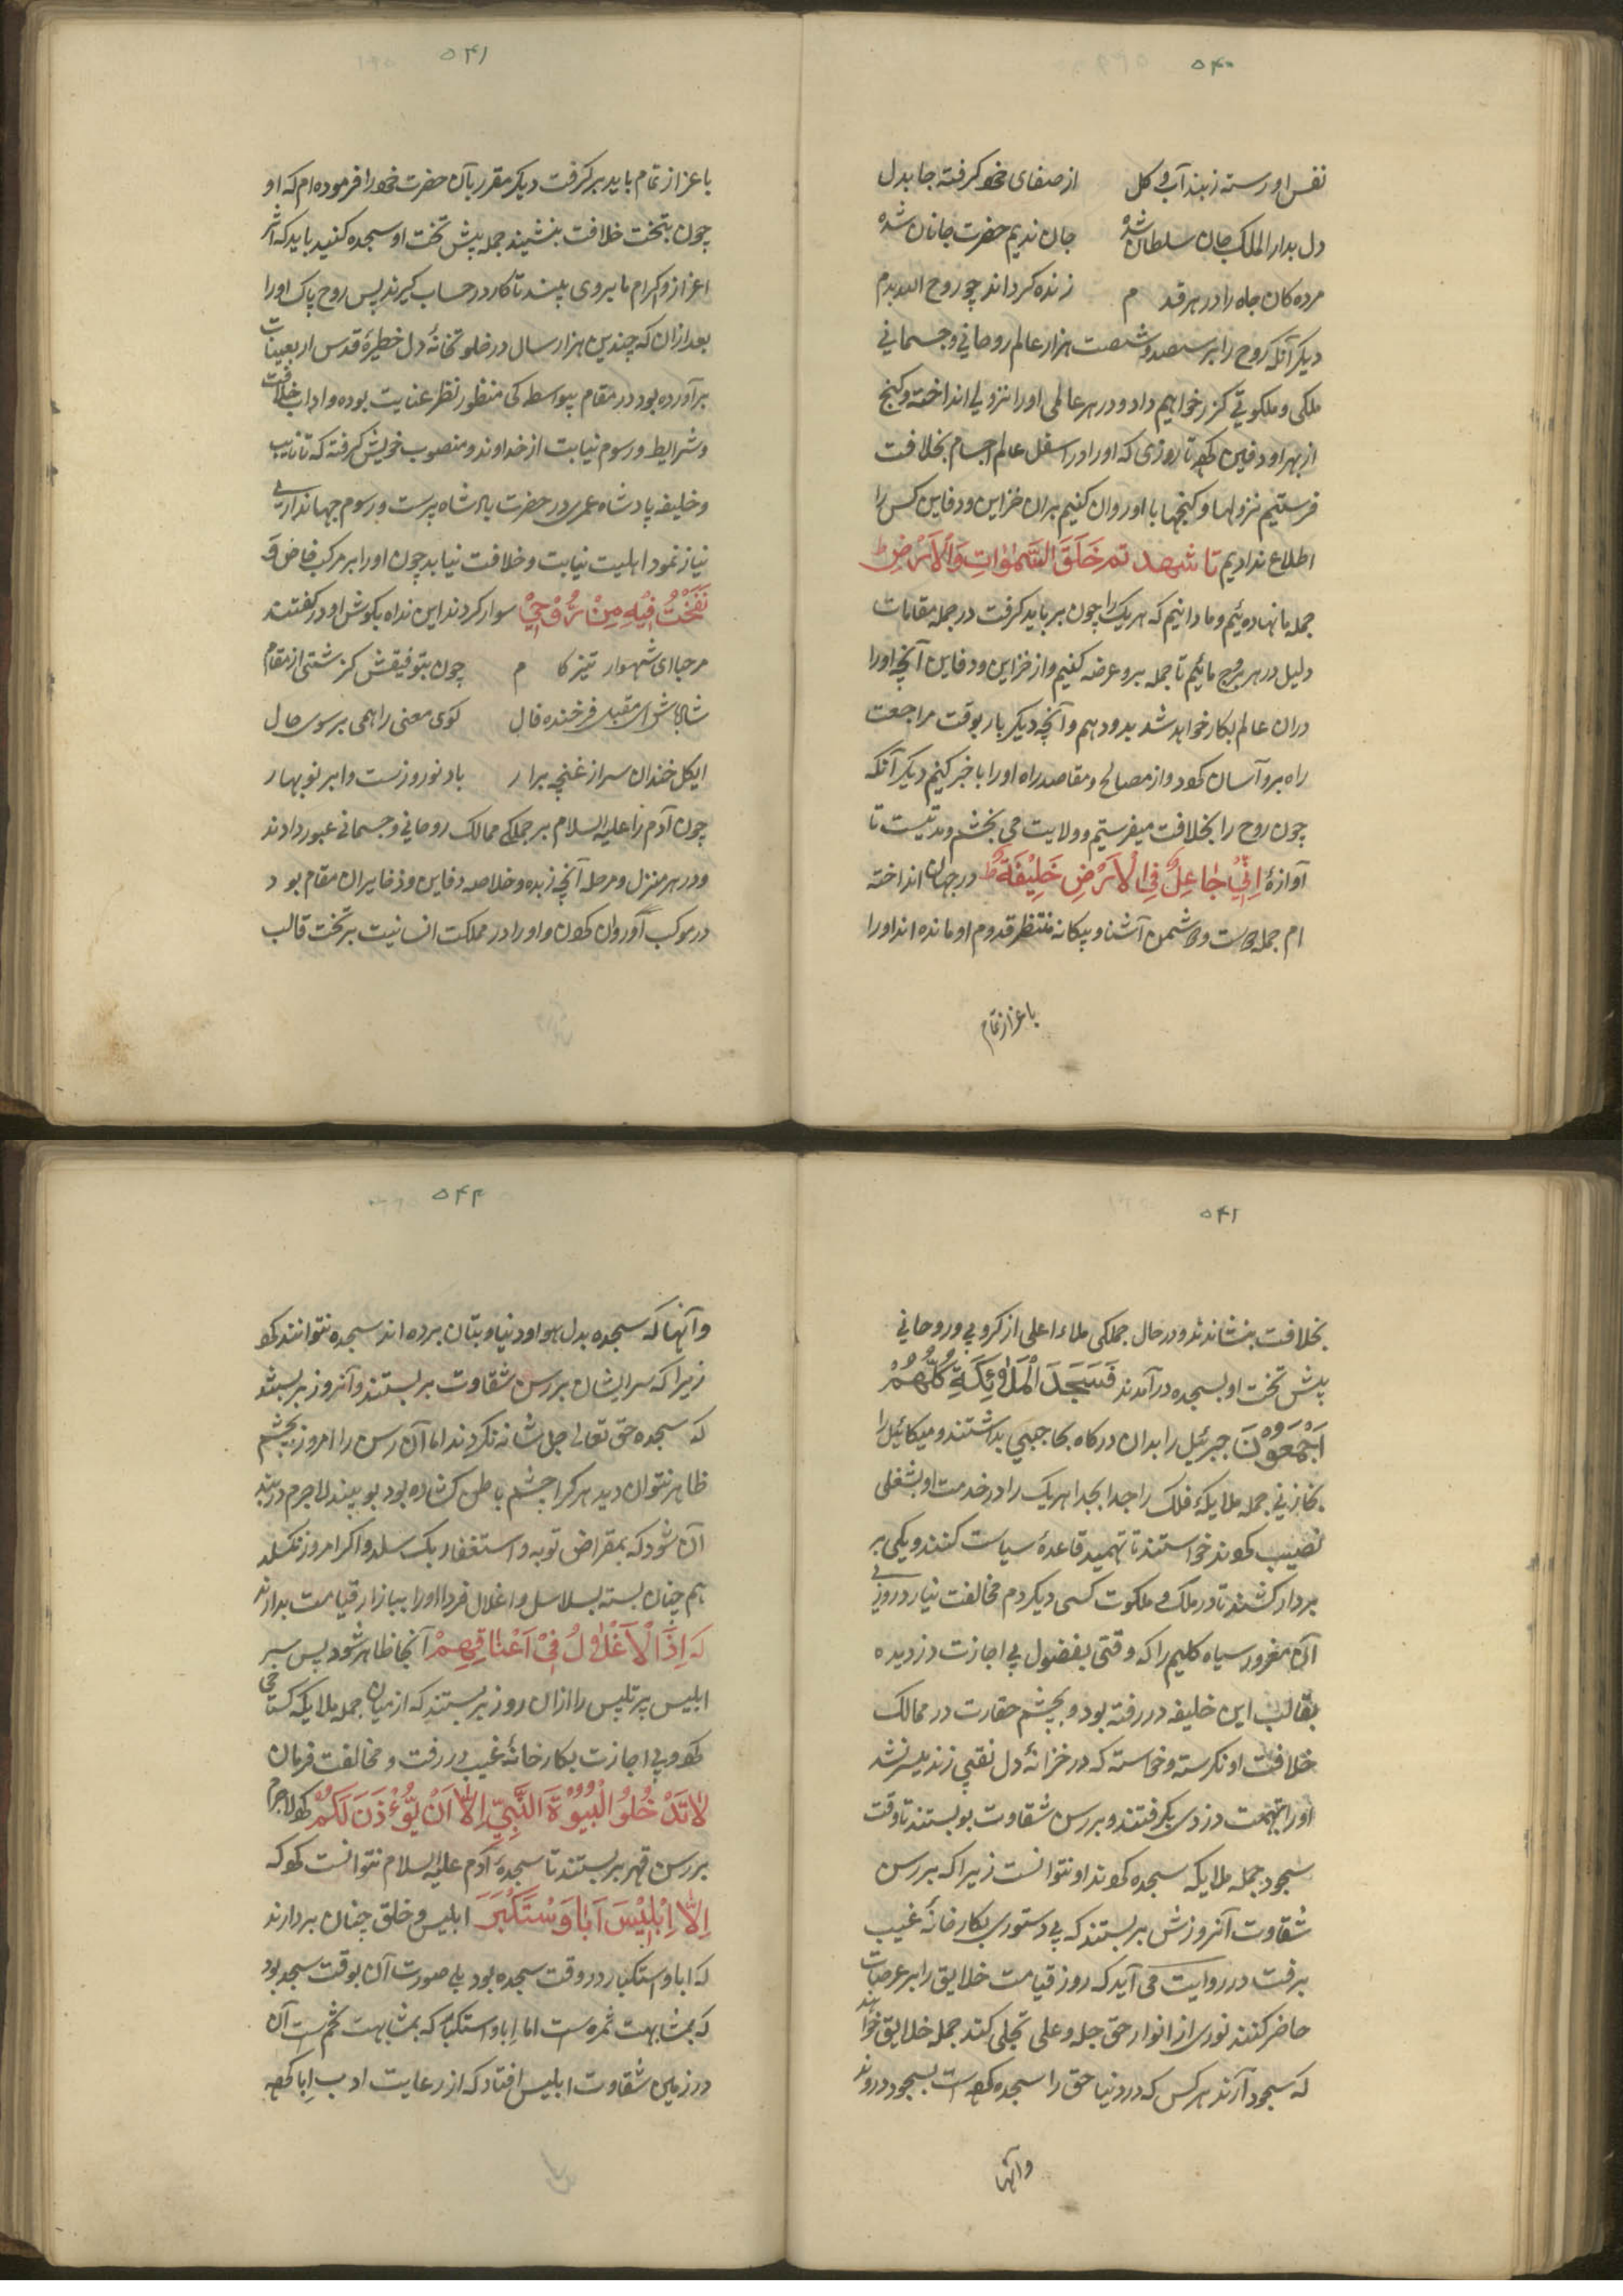 ۵۴۰
نفس او رسته ز بند آب و کل از صفای خود کرفته جا بدل
دل بدار الملک جان سلطان شده جان ندیم حضرت جانان شده
مرده کان جاه را در هر قدم زنده کرداند چو روح الله بدم
دیکر آنکه روح را بر سیصد و شصت هزار عالم روحانی و جسمانی
ملکی و ملکوتی کزر خواهیم داد و در هر عالمی او را نزولی انداخته و کنج
از بهر او دفین کرده تا روزی که او را در اسفل عالم اجسام بخلافت
فرستیم نزولها و کنجها با او روان کنیم بران خزاین و دفاین کس را
اطلاع ندادیم تا شهد تم خَلَقَ السَّمٰوٰاتِ وَالْاَرْضِ ط
جمله ما نهاده ئیم و ما دانیم که هر یک را چون بر باید کرفت در جمله مقامات
دلیل در هر برج مائیم تا جمله برو عرضه کنیم و از خزاین و دفاین آنچه او را
دران عالم بکار خواهد شد بدو دهم و آنچه دیکر بار بوقت مراجعت
راه برو آسان کرد و از مصالح و مقاصد راه او را با خبر کنیم دیکر آنکه
چون روح را بخلافت میفرستیم و ولایت می بخشم و مدتیست تا
آوازهٔ اِنّیْ جٰاعِلٌ فِی الْاَرْضِ خَلِیْفَةً ط در جهان انداخته
ام جمله دوست و دشمن آشنا و بیکانه منتظر قدوم او مانده اند او را
باعزاز تمام
۵۴۱
باعزاز تمام باید بر کرفت دیکر مقرر بآن حضرت خود را فرموده ام که او
چون بتخت خلافت بنشیند جمله پیش تخت او سجده کنید باید که اثر
اعزاز و اکرام ما بروی بینند تا کار در حساب کیرند پس روح پاک او را
بعد ازان که چندین هزار سال در خلوتخانهٔ دل خطیرهٔ قدس اربعینات
برآورده بود در مقام بیواسطه کی منظور نظر عنایت بوده و اداب خلافت
و شرایط و رسوم نیابت از خداوند و منصوب خویش کرفته که تا نایب
و خلیفه پادشاه عمری در حضرت پادشاه پرست و رسوم جهانداری
نیاز نمود اهلیت نیابت و خلافت نیابد چون او را بر مرکب خاص وَ
نَفَخْتُ فِیْهِ مِنْ رُّوْحِیْ سوار کردند این نداه بکوش او در کفتند
مرحبا ای شهسوار تیز کام چون بتوفیقش کزشتی از مقام
شاباش ای مقبل فرخنده فال کوی معنی را همی بر سوی حال
ایکل خندان سر از غنچه برار باد نوروزست و ابر نوبهار
چون آدم را علیه السلام بر جملکی ممالک روحانی و جسمانی عبور دادند
و در هر منزل و مرحله آنچه زبده و خلاصه دفاین و ذخایر ان مقام بود
در موکب آو روان کردن و او را در مملکت انسانیت بر تخت قالب
۵۴۱
بخلافت بنشاندند و در حال جملکی ملاء اعلی از کروبی و روحانی
پیش تخت او بسجده درآمدند فَسَجَدَ الْمَلٰئِکَةِ کُلُّهُمْ
اَجْمَعُوْنَ جبرئیل را بدان درکاه بحاجبی بداشتند و میکائیل را
بخازنی جمله ملایکهٔ فلک را جدا بجدا هریک را در خدمت او بشغلی
نصیب کردند خواستند تا تهمید قاعدهٔ سیاست کنند و یکی بر
بردار کشند تا در ملک و ملکوت کسی دیکر دم مخالفت نیارد روزی
آن مغرور سیاه کلیم را که وقتی بفضول بی اجازت دزدیده
بقالب این خلیفه در رفته بود و بچشم حقارت در ممالک
خلافت او نکرسته و خواسته که در خزانهٔ دل نقبی زند میسر نشد
او را بتهمت دزدی بکرفتند و برسن شقاوت بو بستند تا وقت
سجود جمله ملایکه سجده کردند او نتوانست زیرا که برسن
شقاوت آنروزش بر بستند که بی دستوری بکارخانهٔ غیب
برفت در روایت می آید که روز قیامت خلایق را بر عرصات
حاضر کنند نوری از انوار حق جل و علی تجلی کند جمله خلایق خواهند
که سجود آرند هر کس که در دنیا حق را سجده کرده است بسجود در روند
وآنها
۵۴۲
و آنها که سجده بدل هوا و دنیا و بتان برده اند سجده نتوانند کرد
زیرا که سر ایشان برسن شقاوت بر بستند و آنروز بر بستند
که سجده حق تعالی جل شانه نکردند اما آن رسن را امروز بچشم
ظاهر نتوان دید هر کرا چشم باطن کشاده بود بو بیند لاجرم در بند
آن شود که بمقراض توبه و استغفار بکسلد و اکر امروز نکسلد
هم چنان بسته بسلاسل و اغلال فردا او را ببازار قیامت بدارند
که اِذًا الْاَغْلٰالُ فِیْ اَعْنٰاقِهِمْ آنجا ظاهر شود پس سر
ابلیس پر تلبیس را ازان روز بر بستند که از میان جمله ملایکه کستاخی
کرد و بی اجازت بکارخانهٔ غیب در رفت و مخالفت فرمان
لٰا تَدْخُلُوْ الْبُیُوْةَ النَّبِیِّ اِلّٰا اَنْ یُّوْءْذَنَ لَکُمْ کرد لاجرم
برسن قهر بر بستند تا سجدهٔ آدم علیه السلام نتوانست کرد که
اِلّٰا اِبْلِیْسَ اَبٰا وَسْتَکْبَرَ ابلیس و خلق چنان بردارند
که ابا و استکبار در وقت سجده بود بلی صورت آن بوقت سجد بود
که بمشابهت ثمره ست اما اِبا و استکبار که بمشابهت تخمست آن
در زمین شقاوت ابلیس افتاد که از رعایت ادب اِبا کرده